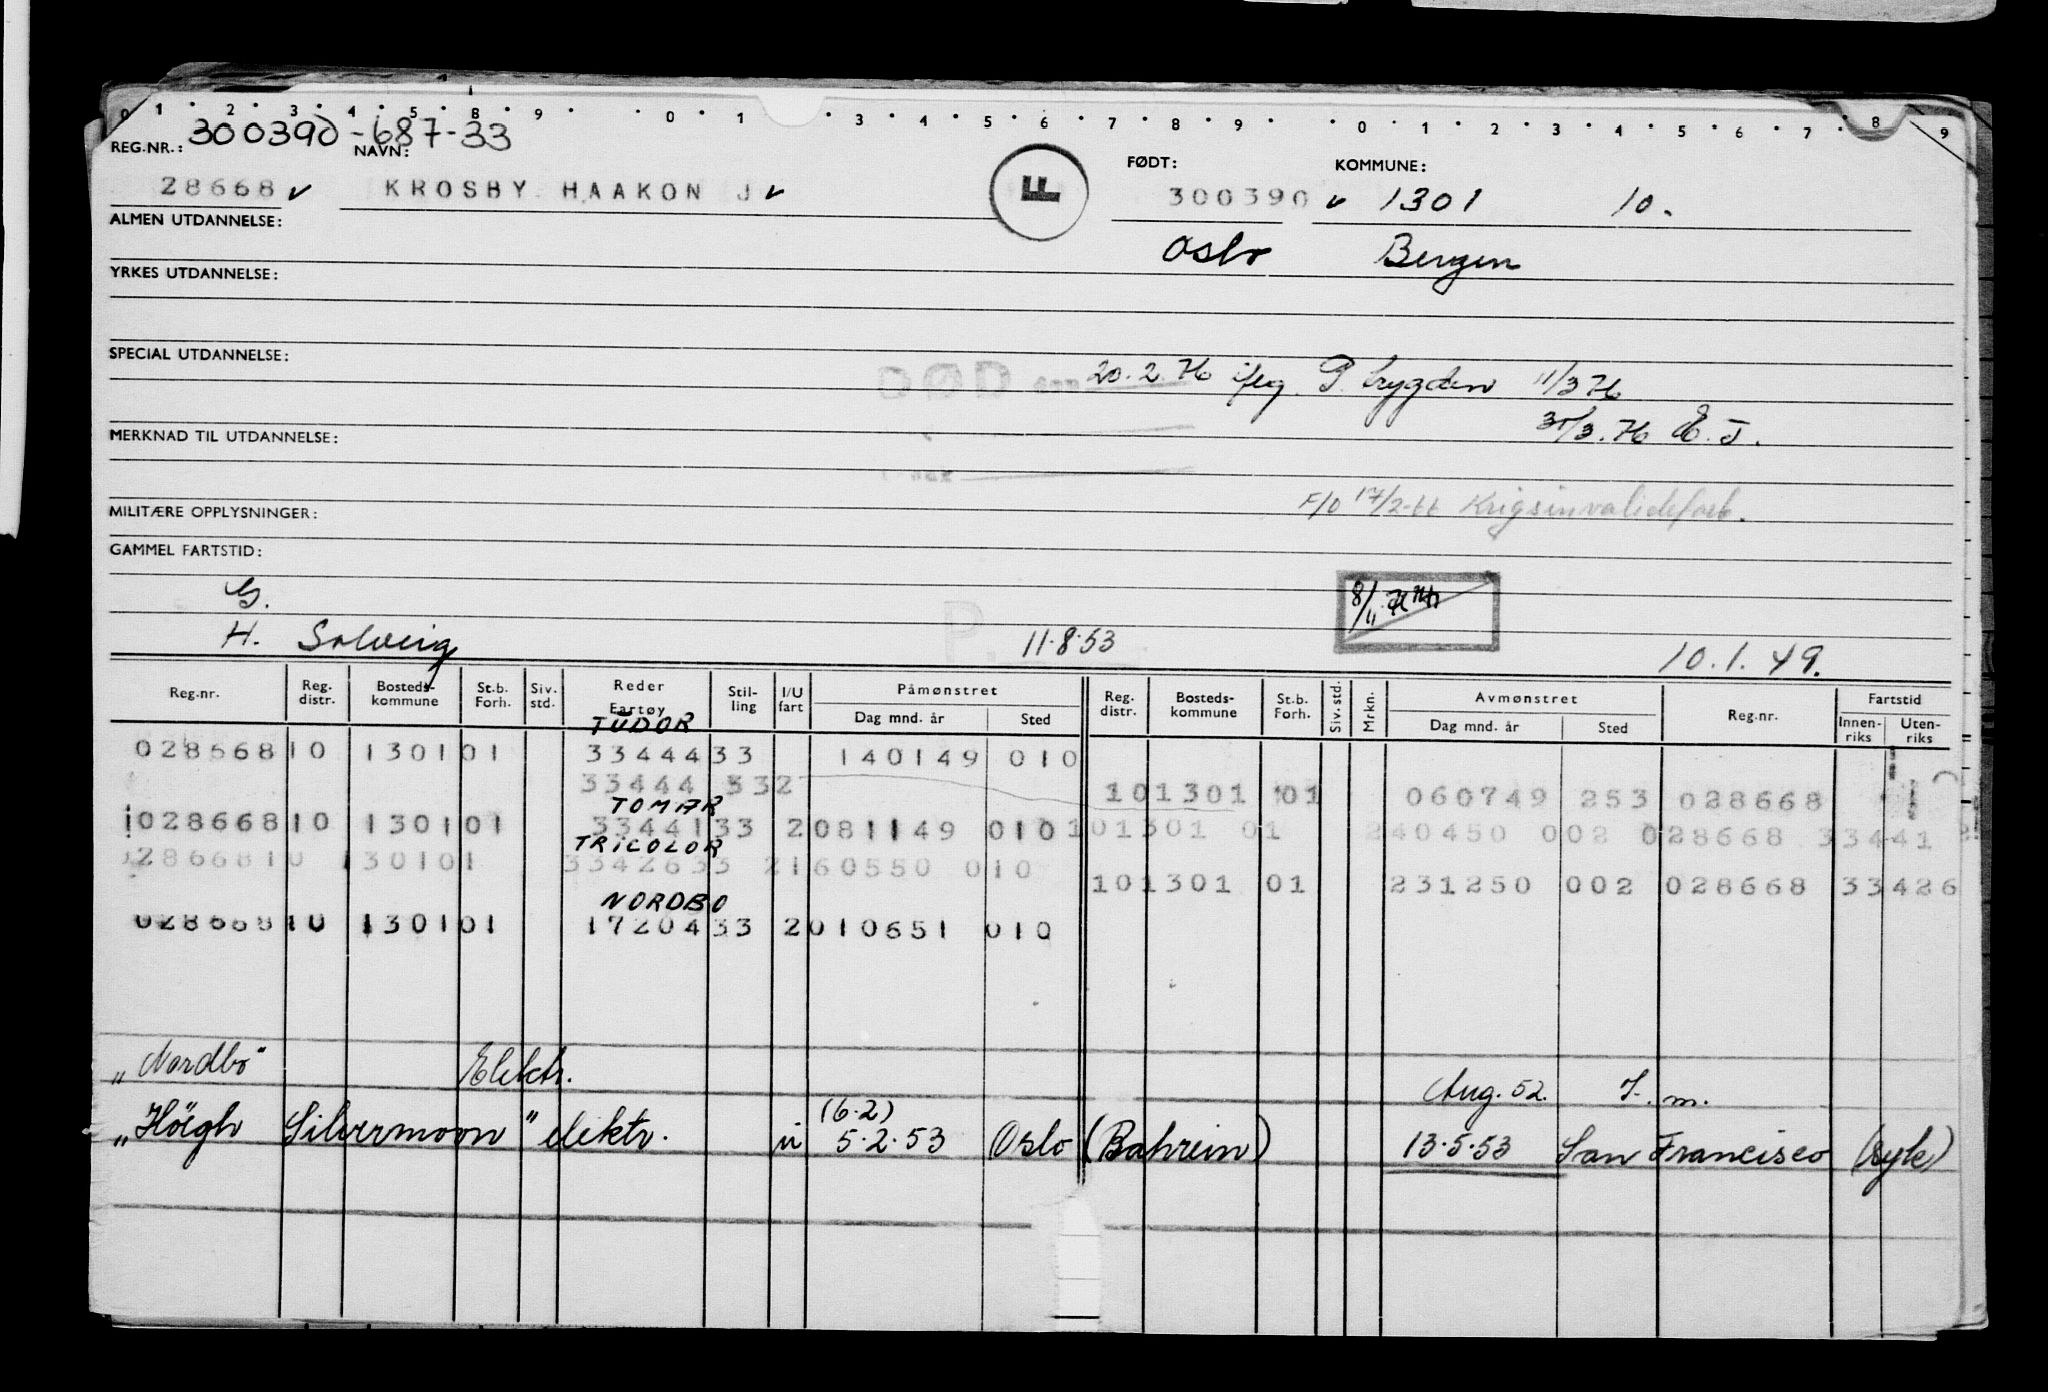 0 1 2 3 4 5 8 9 0 1 3 4 5 6 7 8 9 0 1 2 3 4 5 6 7 8 9
REG.NR.: 300390-687-33 NAVN: FØDT: KOMMUNE:
28668 KROSBY HAAKON J F 300390 1301 10.
ALMEN UTDANNELSE: Oslo Bergen
YRKES UTDANNELSE:
SPECIAL UTDANNELSE: DØD 20.2.76 iflg. P. trygden 11/3 76
31/3.76 E.J.
MERKNAD TIL UTDANNELSE:
F/O 17/2-66 Krigsinvalideforb.
MILITÆRE OPPLYSNINGER:
GAMMEL FARTSTID:
G. 8/11
H. Solveig P. 11.8.53 10.1.49.
Reg.nr. Reg. distr. Bosteds- kommune St.b. Forh. Siv. std. Reder Fartøy Stil- ling I/U fart Påmønstret Dag mnd. år Sted Reg. distr. Bosteds- kommune St.b. Forh. Siv. std. Mrkn. Avmønstret Dag mnd. år Sted Reg.nr. Fartstid Innen- riks Uten- riks
TUDOR
028668 10 1301 01 33444 33 140149 010
33444 332 10 1301 01 060749 253 028668
TOMAR
028668 10 1301 01 33441 33 2 081149 010 10 1301 01 240450 002 028668 33441
TRICOLOR
028668 10 1301 01 33426 33 2 160550 010
10 1301 01 231250 002 028668 33426
NORDBO
028668 10 1301 01 17204 33 2 010651 010
"Nordbo" Elektr. Aug. 52. F.m.
(6.2)
"Höegh Silvermoon" elektr. u 5.2.53 Oslo (Bahrein) 13.5.53 San Francisco (syk)